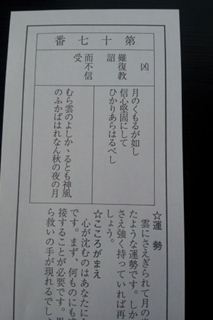 第十七番
凶
雖復教
詔
而不信
受
月のくもるが如し
信心堅固にして
ひかりあらはるべし
むら雲のよしかゝるとも神風
のふかばはれなん秋の夜の月
☆運勢
雲にさえぎられて月の
たような運勢です。しか
さえ強く持っていれば再
しょう。
☆こころがまえ
心が沈むのはあなたに
です。まず、何ものにも
接することが必要です。
ら救いの手が現れるでしょ